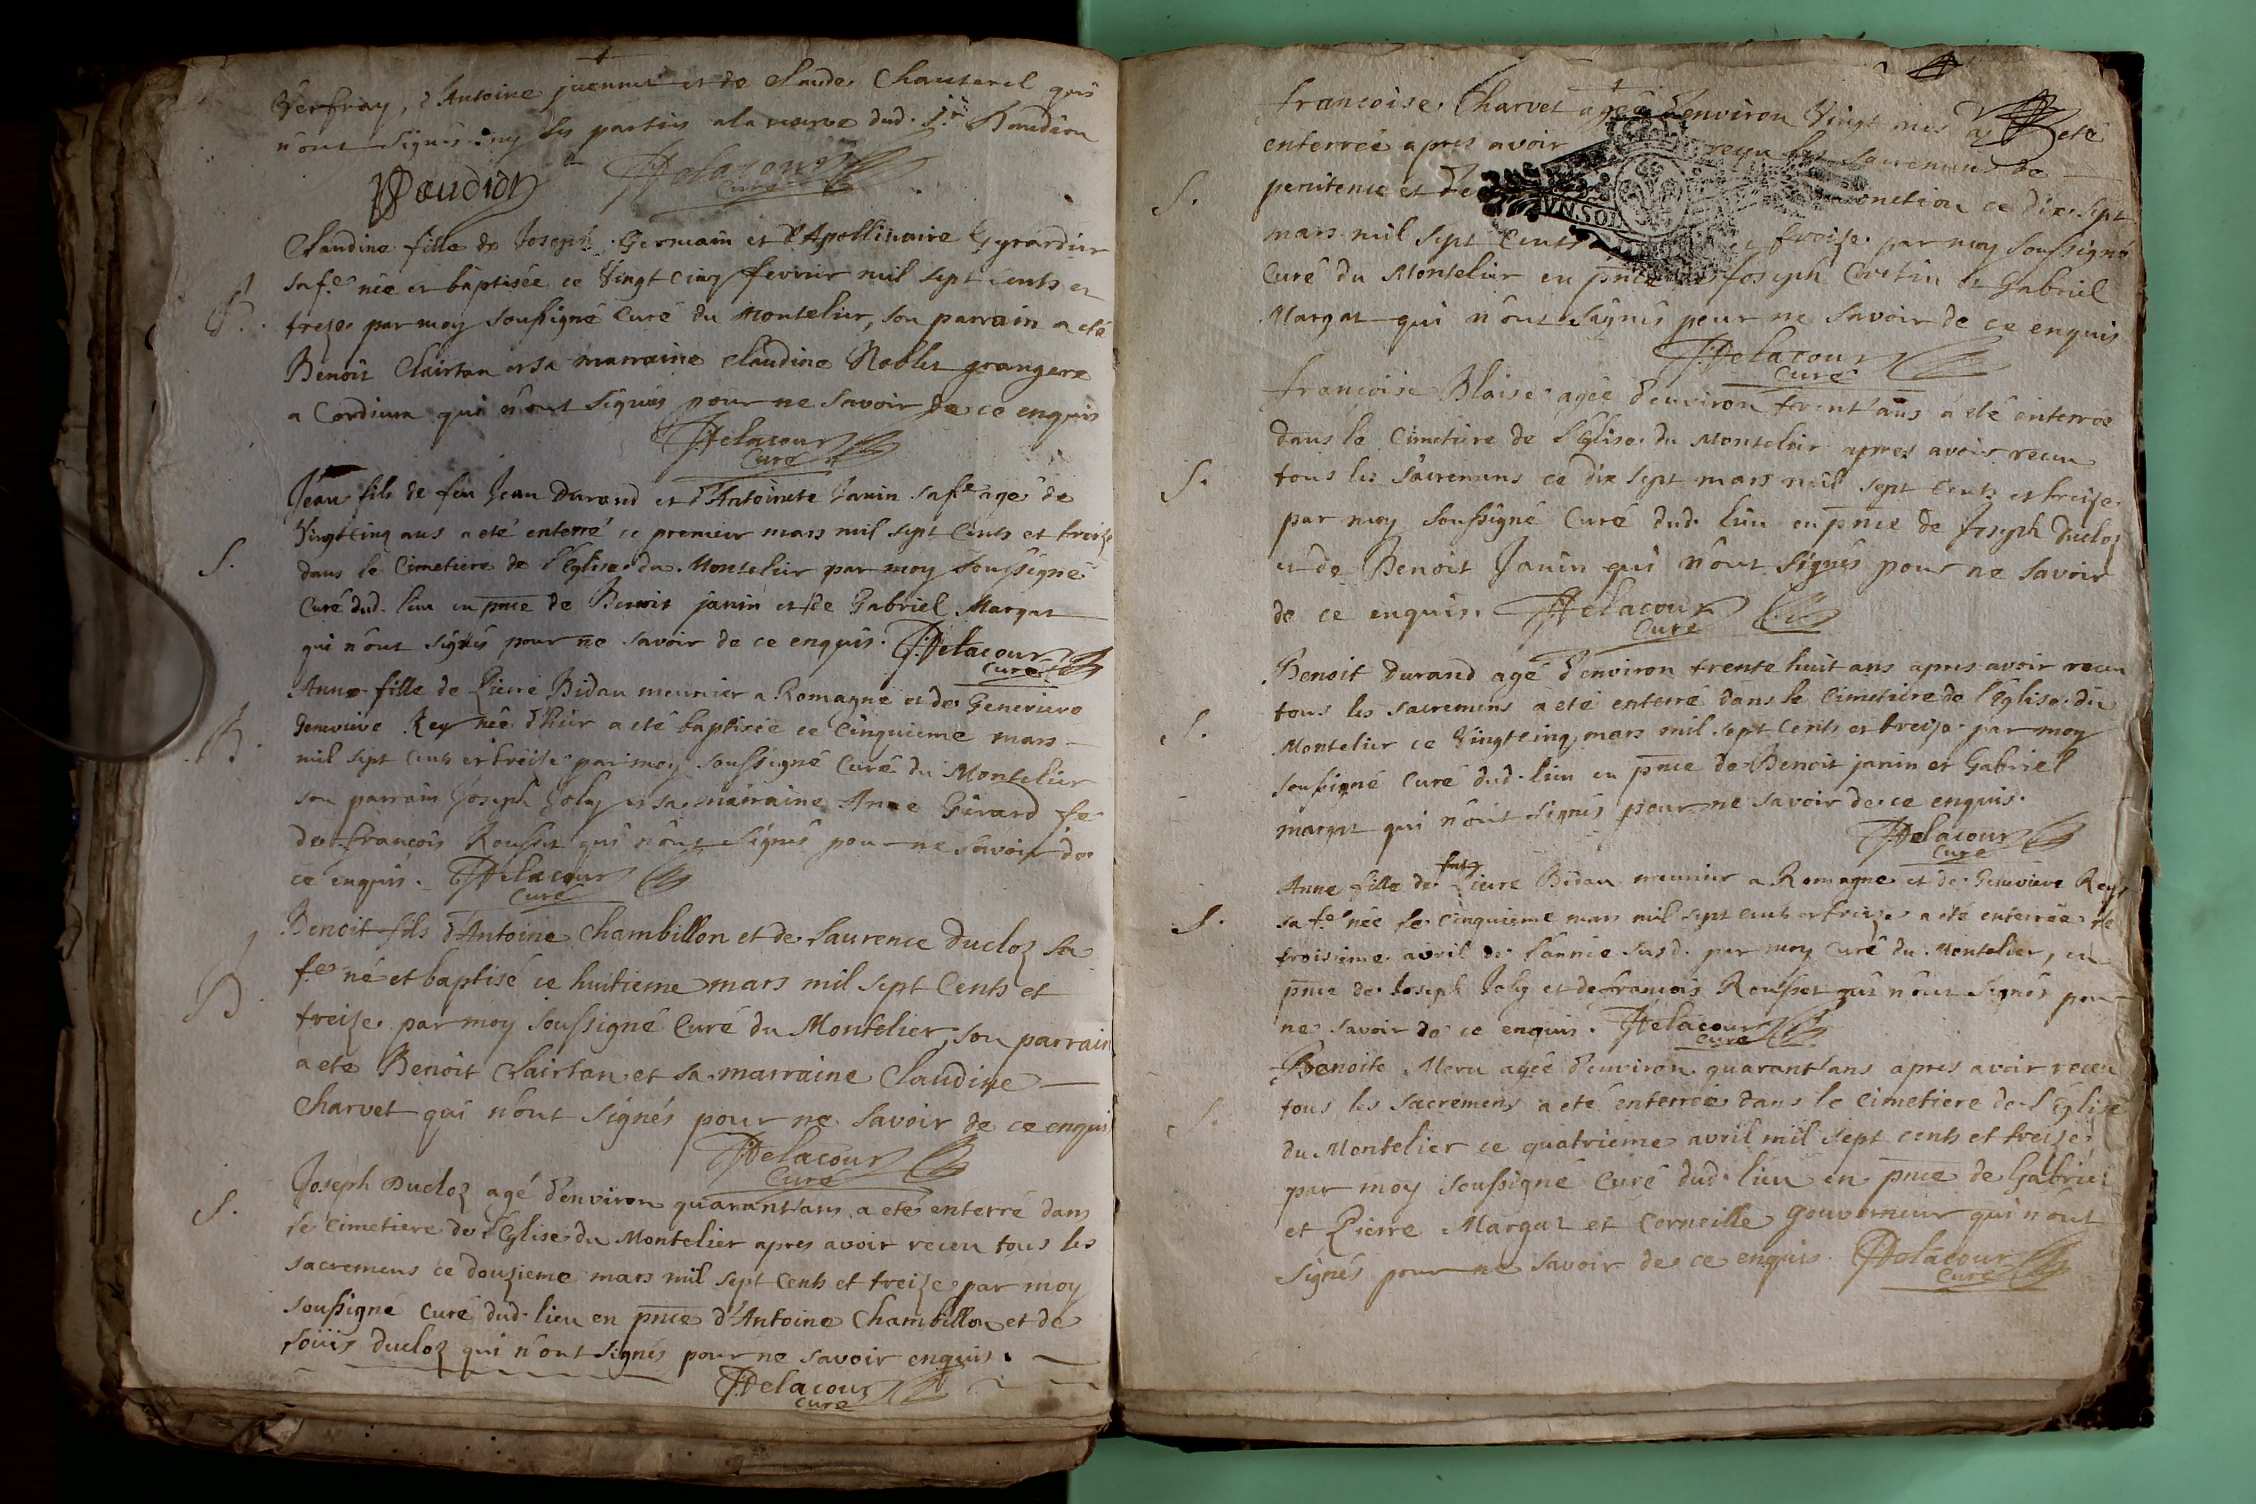 Verfray, d'Antoine juennet et de Claude Chauterel qui
n'ont signés ny les parties a la reserve dud. Sr. Baudin
Baudin Delacour
Curé
Claudine fille de Joseph Germain et d'Apollinaire Gyrardier
B. sa fe née et baptisée ce Vingt cinq fevrier mil sept cents et
treize par moy soussigné Curé du Montelier, son parrain a eté
Benoit Clairtan et sa marraine Claudine Noblet grangere
a Cordieux qui n'ont signés pour ne savoir de ce enquis
Delacour
Curé
Jean fils de feu Jean Durand et d'Antoinete Janin sa fe agé de
Vingtcinq ans a eté enterré ce premier mars mil sept Cents et treize
S. dans le Cimetiere de l'Eglise du Montelier par moy soussigné
Curé dud. lieu en pnce de Benoit janin et de Gabriel Margat
qui n'ont signés pour ne savoir de ce enquis. Delacour
Curé
Anne fille de Pierre Bidau meunier a Romagne et de Genevieve
B. Genevieve Rey née d'hier a eté baptisée ce Cinquieme mars
mil sept Cents et treize par moy soussigné Curé du Montelier
son parrain Joseph Joly et sa marraine Anne Girard fe
de francois Rousset qui n'ont signés pour ne savoir de
ce enquis. Delacour
Curé
Benoit fils d'Antoine Chambillon et de Laurence Ducloz sa
B. fe né et baptisé ce huitieme mars mil sept Cents et
treize par moy soussigné Curé du Montelier, son parrain
a ete Benoit Clairtan et sa marraine Claudine
Charvet qui n'ont signés pour ne savoir de ce enquis
Delacour
Curé
S. Joseph Ducloz agé d'environ quarant'ans a eté enterré dans
le Cimetiere de l'Eglise du Montelier apres avoir receu tous les
sacremens ce douzieme mars mil sept Cents et treize par moy
soussigné Curé dud. lieu en pnce d'Antoine Chambillon et de
Louis Ducloz qui n'ont signés pour ne savoir enquis.
Delacour
Curé
francoise Charvet agée d'environ Vingt ans a eté
enterrée apres avoir receu les sacremens de
S. penitence et d'ex onction ce dix sept
mars mil sept Cents et treize par moy soussigné
Curé du Montelier en pnce de Joseph Cretin et Gabriel
Margat qui n'ont signés pour ne savoir de ce enquis
Delacour
Curé
francoise Blaise agée d'environ trent'ans a eté enterrée
dans le Cimetiere de l'Eglise du Montelier apres avoir receu
S. tous les sacremens ce dix sept mars mil sept Cents et treize
par moy soussigné Curé dud. lieu en pnce de Joseph Ducloz
et de Benoit Janin qui n'ont signés pour ne savoir
de ce enquis. Delacour
Curé
Benoit Durand agé d'environ trente huit ans apres avoir receu
tous les sacremens a eté enterré dans le Cimetiere de l'Eglise du
S. Montelier ce Vingtcinq mars mil sept Cents et treize par moy
soussigné Curé dud. lieu en pnce de Benoit janin et Gabriel
margat qui n'ont signés pour ne savoir de ce enquis.
Delacour
Curé
Anne fille de Pierre Bidau meunier a Romagne et de Genevieve Rey
S. sa fe née le Cinquieme mars mil sept Cents et treize a eté enterrée le
troisieme avril de l'année susd. par moy Curé du Montelier, en
pnce de Joseph Joly et de francois Rousset qui n'ont signés pour
ne savoir de ce enquis. Delacour
Curé
Benoite Meru agée d'environ quarant'ans apres avoir receu
S. tous les sacremens a eté enterrée dans le Cimetiere de l'Eglise
du Montelier ce quatrieme avril mil sept cents et treize
par moy soussigné Curé dud. lieu en pnce de Gabriel
et Pierre Margat et Corneille Gouverneur qui n'ont
signés pour ne savoir de ce enquis. Delacour
Curé